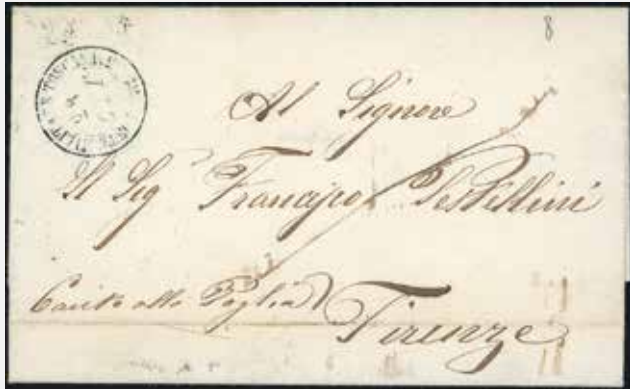 8
Al Signore
Il Sig Francesco Pestellini
Canto alla Paglia
Firenze